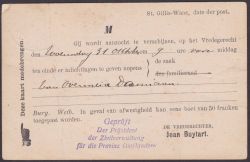 St. Gillis-Waas, date der post.
M
Gij wordt aanzocht te verschijnen, op het Vredegerecht
den woensdag 31 9 ure middag
ten einde er inlichtingen te geven nopens de zaak
den familieraad
van
Burg. Wetb. In geval van afwezigheid kan eene boet van 50 franken
toegepast worden.
DE VREDERECHTER,
Jean Buytart.
Geprüft
Der Präsident
der Zivilverwaltung
für die Provinz Ostflandern
Deze kaart medebrengen